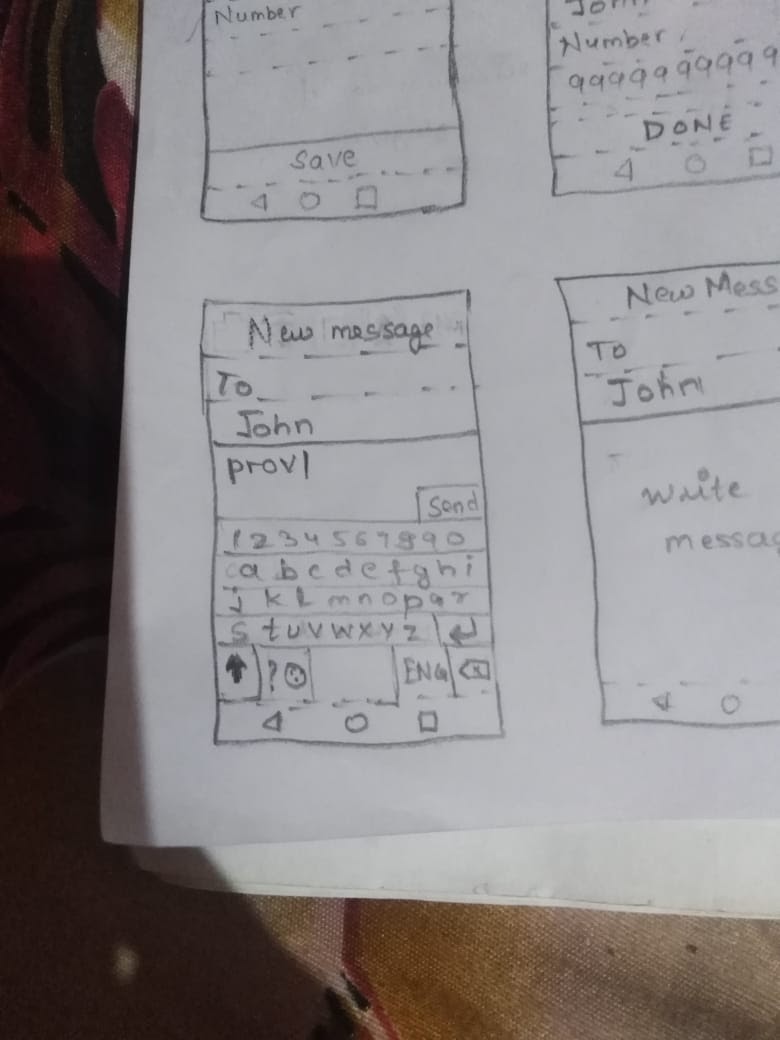 Number
Save
John
Number
9999999999
DONE
New message
To
John
prov
Send
1234567890
a b c d e f g h i
j k l m n o p q r
s t u v w x y z
?
ENG
New Mess
To
John
write
messag